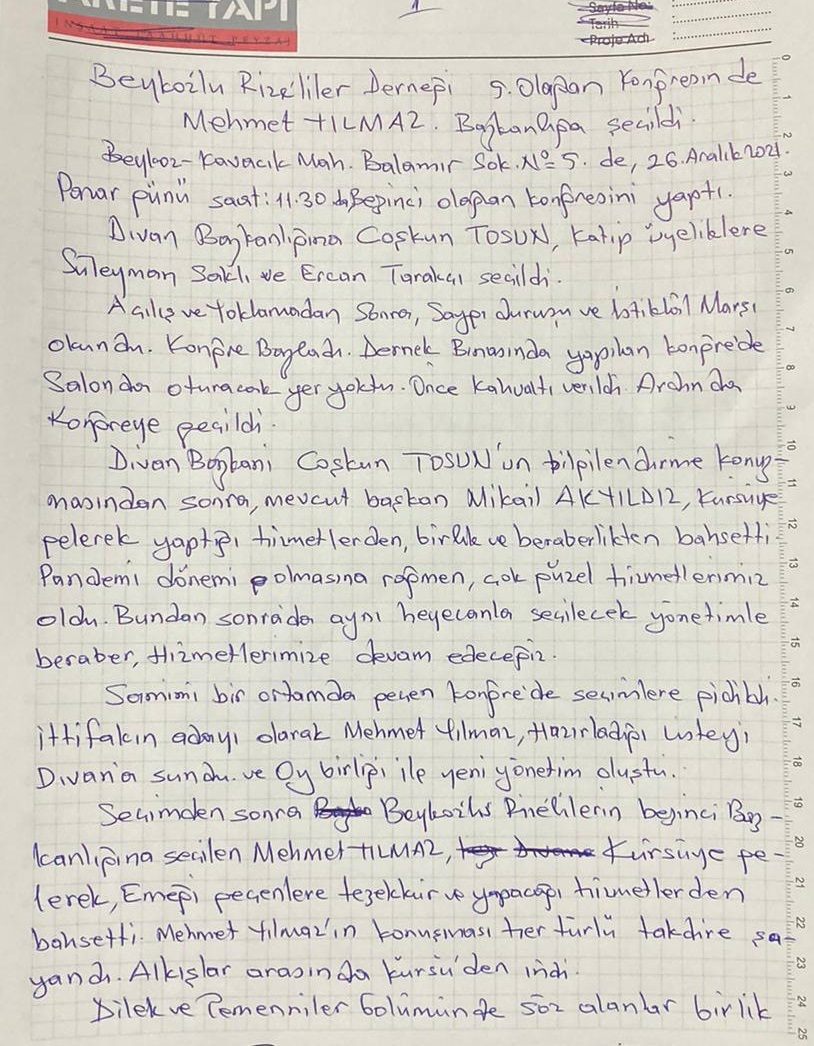 ARETE YAPI
1
Sayfa No:
Tarih
Proje Adı
Beykozlu Rizeliler Derneği 5. Olağan Kongresinde
Mehmet YILMAZ. Başkanlığa seçildi.
Beykoz-Kavacık Mah. Balamir Sok. No=5. de, 26.Aralık 2021.
Pazar günü saat: 11.30 da Beşinci olağan kongresini yaptı.
Divan Başkanlığına Coşkun TOSUN, Katip üyeliklere
Süleyman Saklı ve Ercan Tarakçı seçildi.
Açılış ve Yoklamadan Sonra, Saygı duruşu ve İstiklâl Marşı
okundu. Kongre Başladı. Dernek Binasında yapılan kongre'de
Salonda oturacak yer yoktu. Önce Kahvaltı verildi. Ardında
Kongreye geçildi.
Divan Başkanı Coşkun TOSUN'un bilgilendirme konuş-
masından sonra, mevcut başkan Mikail AKYILDIZ, Kürsüye
gelerek yaptığı hizmetlerden, birlik ve beraberlikten bahsetti
Pandemi dönemi olmasına rağmen, çok güzel hizmetlerimiz
oldu. Bundan sonrada aynı heyecanla seçilecek yönetimle
beraber, Hizmetlerimize devam edeceğiz.
Samimi bir ortamda geçen kongre'de seçimlere gidildi.
İttifakın adayı olarak Mehmet Yılmaz, Hazırladığı listeyi
Divan'a sundu. ve Oy birliği ile yeni yönetim oluştu.
Seçimden sonra Beykozlu Rizelilerin beşinci Baş-
kanlığına seçilen Mehmet YILMAZ, Kürsüye ge-
lerek, Emeği geçenlere teşekkür ve yapacağı hizmetlerden
bahsetti. Mehmet Yılmaz'ın konuşması her türlü takdire şa-
yandı. Alkışlar arasında kürsü'den indi.
Dilek ve Temenniler bölümünde söz alanlar birlik
0
1
2
3
4
5
6
7
8
9
10
11
12
13
14
15
16
17
18
19
20
21
22
23
24
25